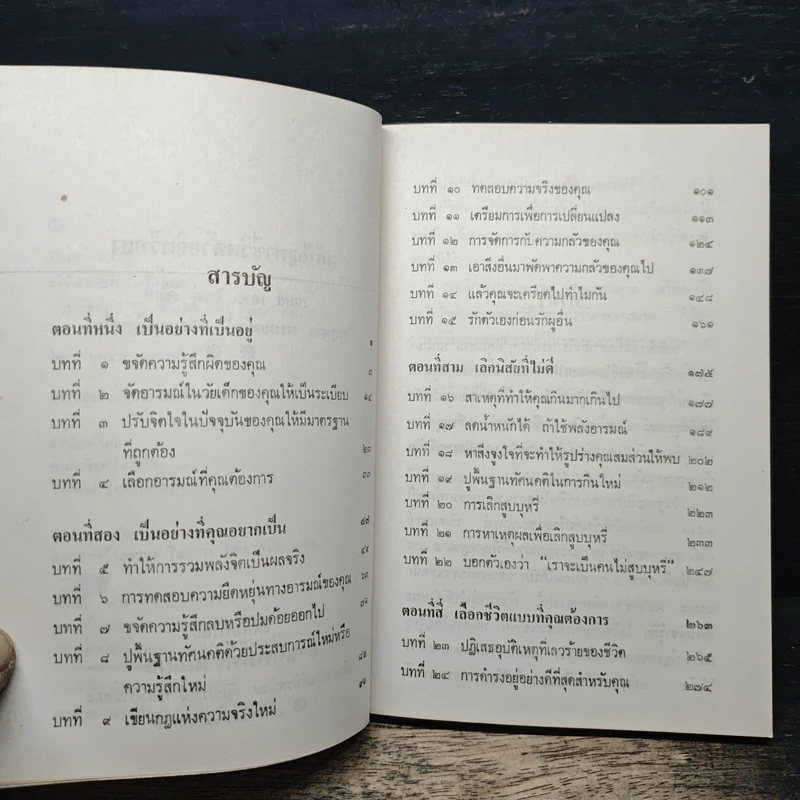 สารบัญ
ตอนที่หนึ่ง เป็นอย่างที่เป็นอยู่ ๑
บทที่ ๑ ขจัดความรู้สึกผิดของคุณ ๓
บทที่ ๒ จัดอารมณ์ในวัยเด็กของคุณให้เป็นระเบียบ ๑๔
บทที่ ๓ ปรับจิตใจในปัจจุบันของคุณให้มีมาตรฐาน
ที่ถูกต้อง ๒๓
บทที่ ๔ เลือกอารมณ์ที่คุณต้องการ ๓๓
ตอนที่สอง เป็นอย่างที่คุณอยากเป็น ๔๗
บทที่ ๕ ทำให้การรวมพลังจิตเป็นผลจริง ๔๙
บทที่ ๖ การทดสอบความยืดหยุ่นทางอารมณ์ของคุณ ๖๓
บทที่ ๗ ขจัดความรู้สึกลบหรือปมด้อยออกไป
บทที่ ๘ ปูพื้นฐานทัศนคติด้วยประสบการณ์ใหม่หรือ
ความรู้สึกใหม่
บทที่ ๙ เขียนกฎแห่งความจริงใหม่
บทที่ ๑๐ ทดสอบความจริงของคุณ ๑๐๑
บทที่ ๑๑ เตรียมการเพื่อการเปลี่ยนแปลง ๑๑๓
บทที่ ๑๒ การจัดการกับความกลัวของคุณ ๑๒๔
บทที่ ๑๓ เอาสิ่งอื่นมาพัดพาความกลัวของคุณไป ๑๓๗
บทที่ ๑๔ แล้วคุณจะเครียดไปทำไมกัน ๑๔๘
บทที่ ๑๕ รักตัวเองก่อนรักผู้อื่น ๑๖๑
ตอนที่สาม เลิกนิสัยที่ไม่ดี ๑๗๕
บทที่ ๑๖ สาเหตุที่ทำให้คุณกินมากเกินไป ๑๗๗
บทที่ ๑๗ ลดน้ำหนักได้ ถ้าใช้พลังอารมณ์ ๑๘๙
บทที่ ๑๘ หาสิ่งจูงใจที่จะทำให้รูปร่างคุณสมส่วนให้พบ ๒๐๒
บทที่ ๑๙ ปูพื้นฐานทัศนคติในการกินใหม่ ๒๑๒
บทที่ ๒๐ การเลิกสูบบุหรี่ ๒๒๓
บทที่ ๒๑ การหาเหตุผลเพื่อเลิกสูบบุหรี่ ๒๓๓
บทที่ ๒๒ บอกตัวเองว่า “เราจะเป็นคนไม่สูบบุหรี่” ๒๔๗
ตอนที่สี่ เลือกชีวิตแบบที่คุณต้องการ ๒๖๓
บทที่ ๒๓ ปฏิเสธอุบัติเหตุที่เลวร้ายของชีวิต ๒๖๕
บทที่ ๒๔ การดำรงอยู่อย่างดีที่สุดสำหรับคุณ ๒๗๔